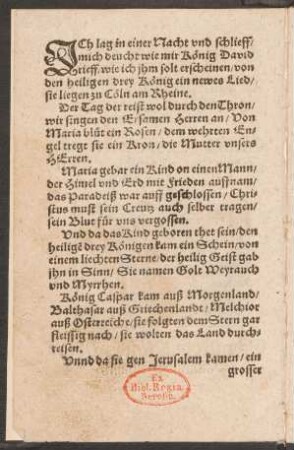 ICh lag in einer Nacht vnd schlieff/
mich deucht wie mir König David
brieff/ wie ich jhm solt erscheinen/ von
den heiligen drey König ein newes Lied/
sie liegen zu Cöln am Rheine.
Der Tag der reist wol durch den Thron/
wir singen den Ersamen Herren an/ Von
Maria blüt ein Rosen/ dem wehrten En-
gel tregt sie ein Kron/ die Mutter vnsers
HErren.
Maria gebar ein Kind on einen Mann/
der Himel vnd Erd mit Frieden auffnam/
das Paradeiß war auff geschlossen/ Chri-
stus must sein Creutz auch selber tragen/
sein Blut für vns vergossen.
Vnd da das Kind geboren thet sein/ den
heiligē drey Königen kam ein Schein/ von
einem liechten Sterne/ der heilig Geist gab
jhn in Sinn/ Sie namen Golt Weyrauch
vnd Myrrhen.
König Caspar kam auß Morgenland/
Balthasar auß Griechenlandt/ Melchior
auß Osterreiche/ sie folgten dem Stern gar
fleissig nach/ sie wolten das Land durch-
reisen.
Vnnd da sie gen Jerusalem kamen/ ein
grosser
Ex
Bibl. Regia
Berolin.